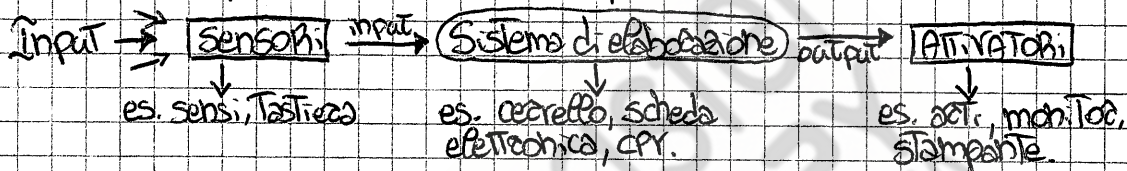 input → sensori input → Sistema di elaborazione output → ATTIVATORI
es. sensi, tastiera es. cervello, scheda es. arti, monitor,
elettronica, CPU. stampante.